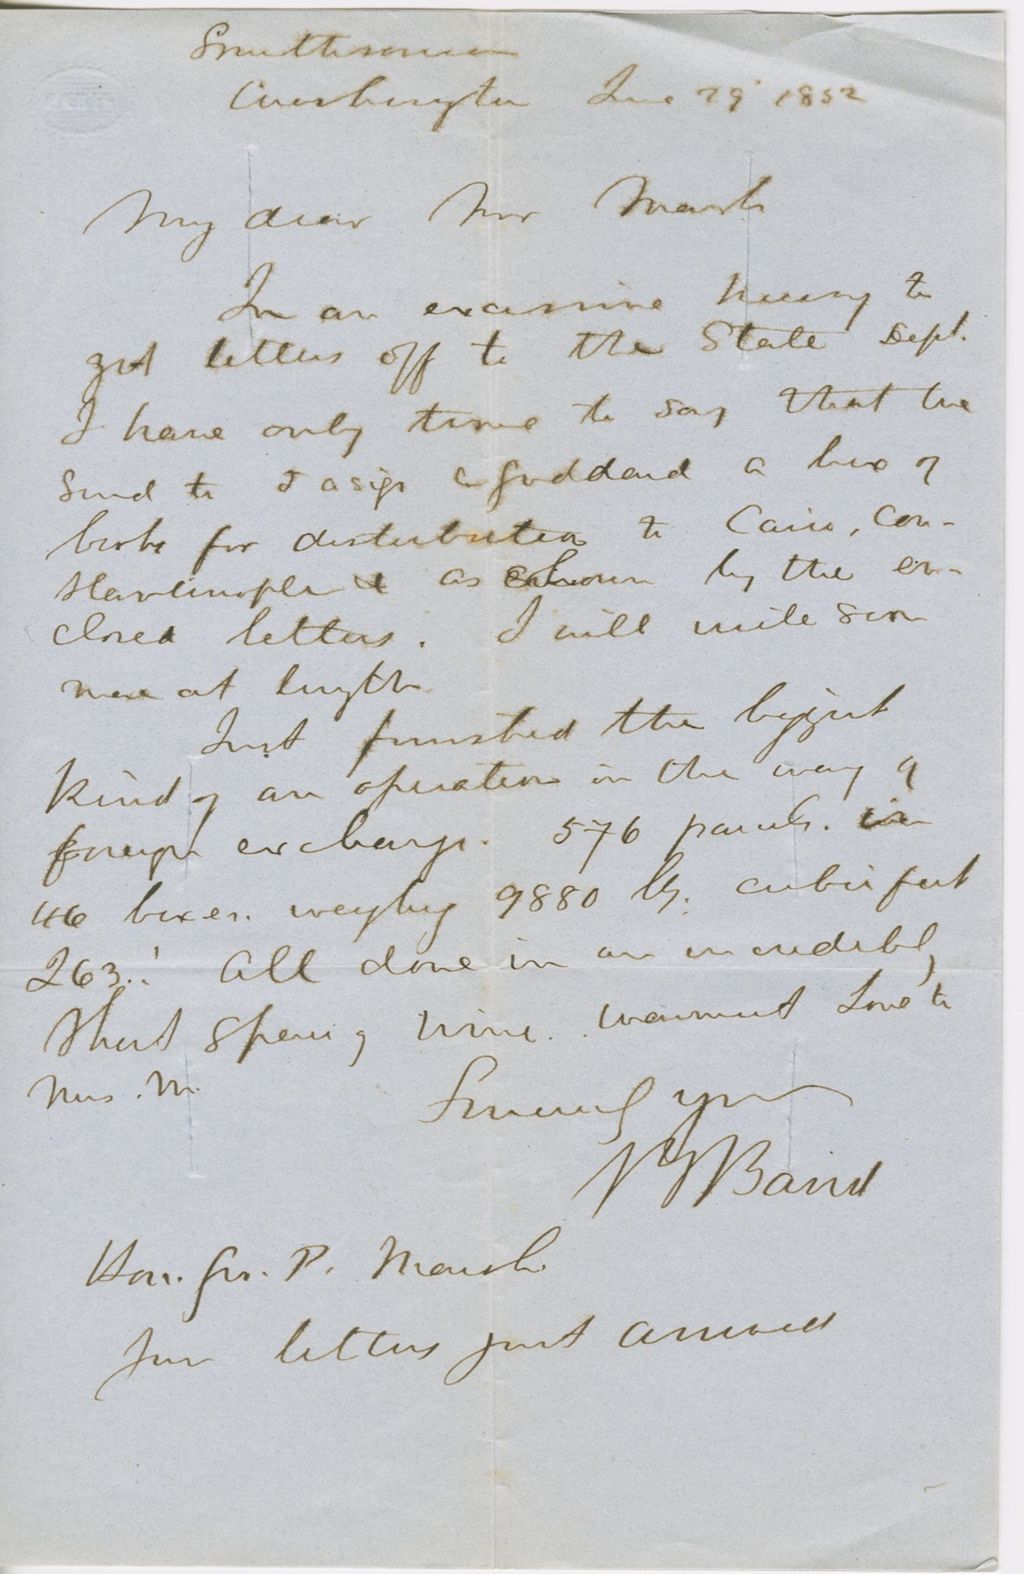 Smithsonian
Washington June 29 1852
My dear Mr Marsh
In an excessive hurry to
get letters off to the State Dept.
I have only time to say that we
send to & Goddard a box of
books for distribution to Cairo, Con-
stantinople & as shown by the en-
closed letters. I will write soon
more at length
Just finished the biggest
kind of an operation in the way of
foreign exchange. 576 parcels. in
46 boxes. weighing 9880 lbs. cubic feet
263.! All done in an incredibly
short space of time. Warmest love to
Mrs. M.
Sincerely yours
S F Baird
Hon. Geo. P. Marsh
Your letters just arrived